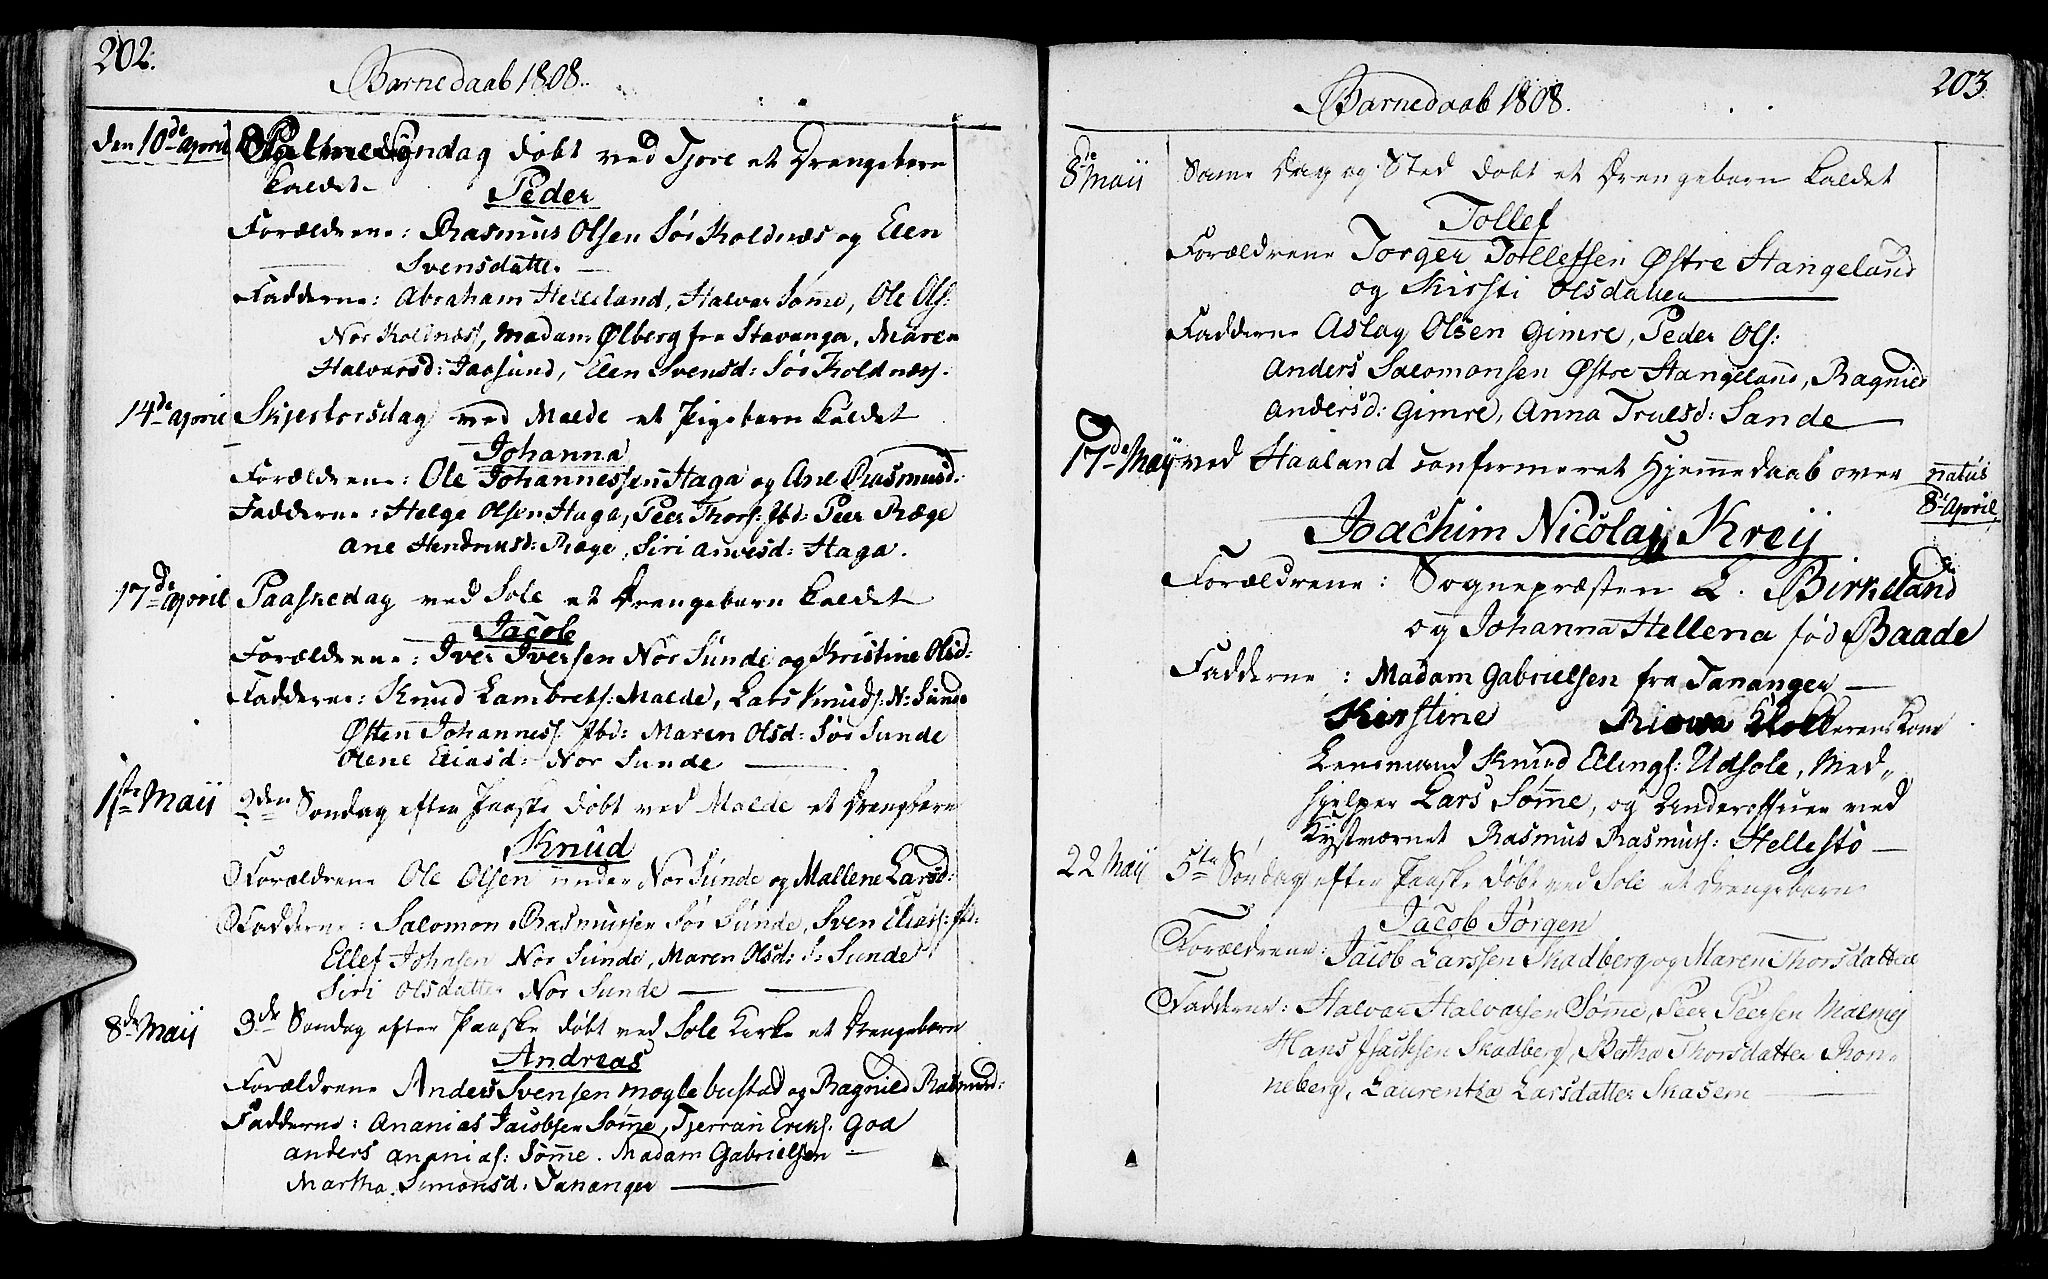 202.
Barnedaab 1808.
den 10de April Palme Søndag døbt ved Tjore et Drengebarn
kaldet
Peder
Forældrene: Rasmus Olsen Sør Koldnæs og Elen
Svensdatter
Fadderne: Abraham Helleland, Halvor Sømme, Ole Ols:
Nor Kollnæs, Madam Ølberg fra Stavanger, Maren
Halvorsd: Jaasund, Elen Svensd: Sør Koldnæs.
14de April Skjertorsdag ved Malde et Pigebarn kaldet
Johanna
Forældrene: Ole Johannessen Haga og Ane Rasmusd:
Fadderne: Helge Olsen Haga, Peer Thors: Ibd: Peer Ræge
Ane Hendriksd: Ræge, Siri Arnesd: Haga.
17de April Paaskedag ved Sole et Drengebarn kaldet
Jacob
Forældrene: Iver Iversen Nor Sunde og Kristine Olsd:
Fadderne: Knud Lambrets: Malde, Lars Knuds: N: Sunde
Østen Johanness. Ibd: Maren Olsd: Sør Sunde
Olene Eliasd: Nor Sunde
1ste Maij 2den Søndag efter Paaske døbt ved Malde et Drengbarn
Knud
Forældrene Ole Olsen under Nor Sunde og Mallene Larsd:
Fadderne: Salomon Rasmussen Sør Sunde, Sven Elias: Ibd:
Ellef Johnsen Nor Sunde, Maren Olsd: S: Sunde
Siri Olsdatter Nor Sunde
8de Maij 3de Søndag efter Paaske døbt ved Sole Kirke et Drengebarn
Andreas
Forældrene Anders Svensen Moglebustad og Ragnild Rasmusd:
Fadderne: Ananias Jacobsen Sømme, Tjerran Eriks: Goa
Anders Ananias: Sømme. Madam Gabrielsen
Martha Simonsd: Tananger
203.
Barnedaab 1808.
8de Maij Samme Dag og Sted døbt et Drengebarn kaldet
Tollef
Forældrene Torger Tollefsen Østre Stangeland
og Kirsti Olsdatter
Fadderne Aslag Olsen Gimre, Peder Ols:
Anders Salomonsen Østre Stangeland, Ragnild
Andersd: Gimre, Anna Trulsd: Sande
17de Maij ved Haaland confirmeret Hjemmedaab over
natus
8de April
Joachim Nicolaj Kreij
Forældrene: Sognepræsten L. Birkeland
og Johanna Hellena fød Baade
Fadderne: Madam Gabrielsen fra Tananger
Kirstine Klokkerens Kone
Lensmand Knud Ellings: Udsole, Med-
hjelper Lars Sømme, og Underofficer ved
Kystværnet Rasmus Rasmus: Hellestø
22 Maij 5te Søndag efter Paaske døbt ved Sole et Drengebarn
Jacob Jørgen
Forældrene: Jacob Larssen Skadberg og Maren Thorsdatter
Fadderne: Halvor Halvorsen Sømme, Peer Peersen Malmej
Hans Isacksen Skadberg, Bertha Thorsdatter Thon-
neberg, Laurentha Larsdatter Skasem